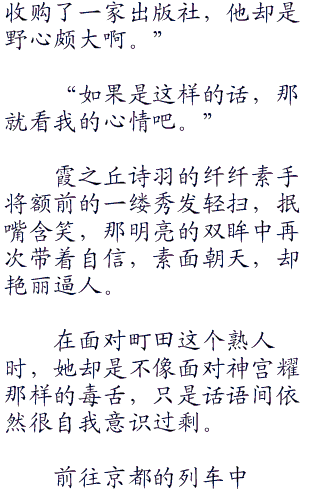 收购了一家出版社，他却是
野心颇大啊。”
“如果是这样的话，那
就看我的心情吧。”
霞之丘诗羽的纤纤素手
将额前的一缕秀发轻扫，抿
嘴含笑，那明亮的双眸中再
次带着自信，素面朝天，却
艳丽逼人。
在面对町田这个熟人
时，她却是不像面对神宫耀
那样的毒舌，只是话语间依
然很自我意识过剩。
前往京都的列车中